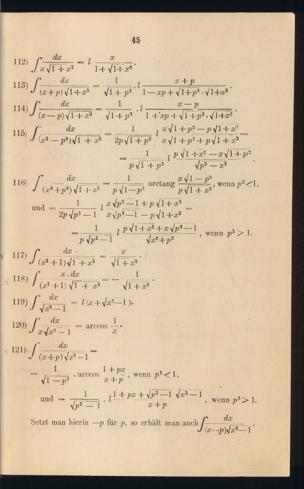 45
112) ∫ dx / x√1+x² = l x / 1+√1+x² .
113) ∫ dx / (x+p)√1+x² = 1 / √1+p² . l x+p / 1−xp+√1+p² . √1+x² .
114) ∫ dx / (x−p)√1+x² = 1 / √1+p² . l x−p / 1+xp+√1+p² . √1+x² .
115) ∫ dx / (x²−p²)√1+x² = 1 / 2p√1+p² l x√1+p²−p√1+x² / x√1+p²+p√1+x² =
= 1 / p√1+p² l p√1+x²−x√1+p² / √p²−x² .
116) ∫ dx / (x²+p²)√1+x² = 1 / p√1−p² arctang x√1−p² / p√1+x² , wenn p²<1,
und = 1 / 2p√p²−1 l x√p²−1+p√1+x² / x√p²−1−p√1+x² =
= 1 / p√p²−1 l p√1+x²+x√p²−1 / √x²+p² , wenn p²>1.
117) ∫ dx / (x²+1)√1+x² = x / √1+x² .
118) ∫ x.dx / (x²+1)√1+x² = − 1 / √1+x² .
119) ∫ dx / √x²−1 = l (x+√x²−1).
120) ∫ dx / x√x²−1 = arccos 1 / x .
121) ∫ dx / (x+p)√x²−1 =
= 1 / √1−p² . arccos 1+px / x+p , wenn p²<1,
und = 1 / √p²−1 . l 1+px+√p²−1 √x²−1 / x+p , wenn p²>1.
Setzt man hierin −p für p, so erhält man auch ∫ dx / (x−p)√x²−1 .